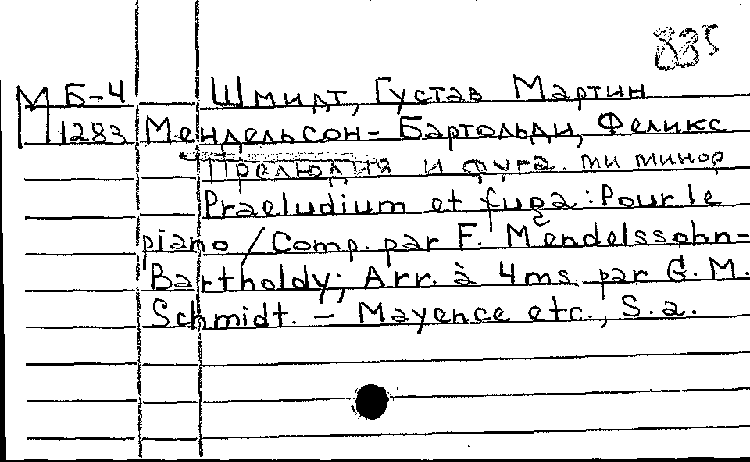 835
М Б-4 Шмидт, Густав Мартин
1283 Мендельсон-Бартольди, Феликс
Прелюдия и фуга ми минор
Praeludium et fuga: Pour le
piano / Comp. par F. Mendelssohn-
Bartholdy; Arr. à 4 ms. par G. M.
Schmidt. – Mayence etc., S.a.